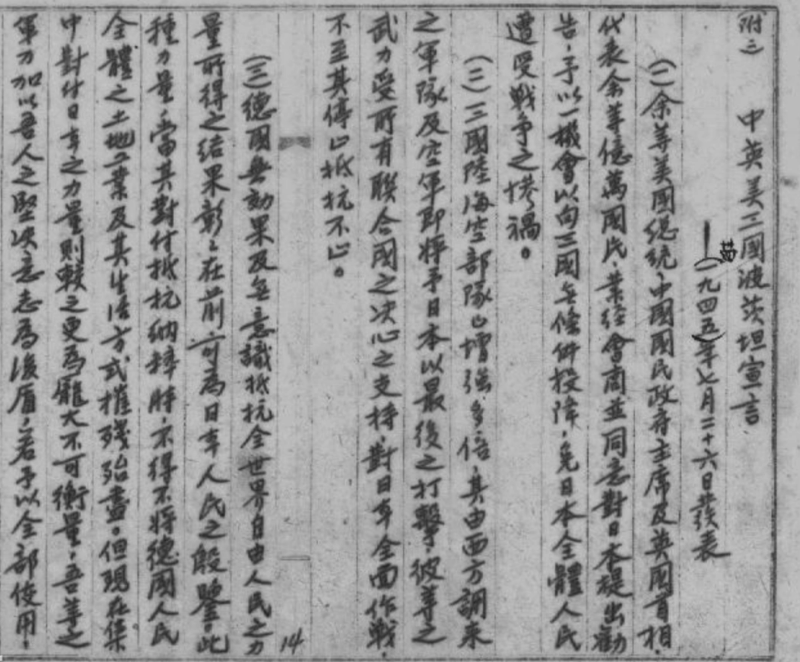 (附三)　中英美三國波茨坦宣言
一九四五年七月二十六日發表
(一)余等美國總統、中國國民政府主席及英國首相
代表余等億萬國民業經會商並同意對日本提出勸
告，予以一機會以向三國無條件投降，免日本全體人民
遭受戰爭之慘禍。
(二)三國陸海空部隊已增強多倍，其由西方調來
之軍隊及空軍即將予日本以最後之打擊，彼等之
武力受所有聯合國之決心之支持，對日本全面作戰，
不至其停止抵抗不止。
14
(三)德國無効果及無意識抵抗全世界自由人民之力
量所得之結果彰彰在前，可為日本人民之殷鑒，此
種力量，當其對付抵抗納粹時，不得不將德國人民
全體之土地工業及其生活方式摧殘殆盡。但現在集
中對付日本之力量則較之更為龐大不可衡量，吾等之
軍力加以吾人之堅決意志為後盾，若予以全部使用，